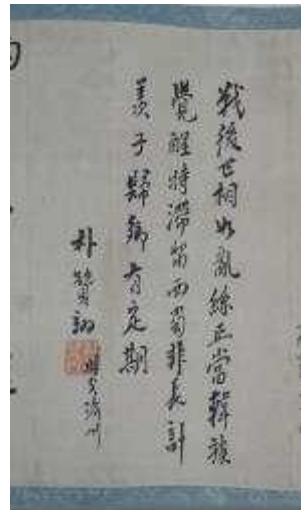 戰後世相如亂絲正當韓族
覺醒時滯留兩蜀非長計
羨子歸鄉有定期
朴贊翊